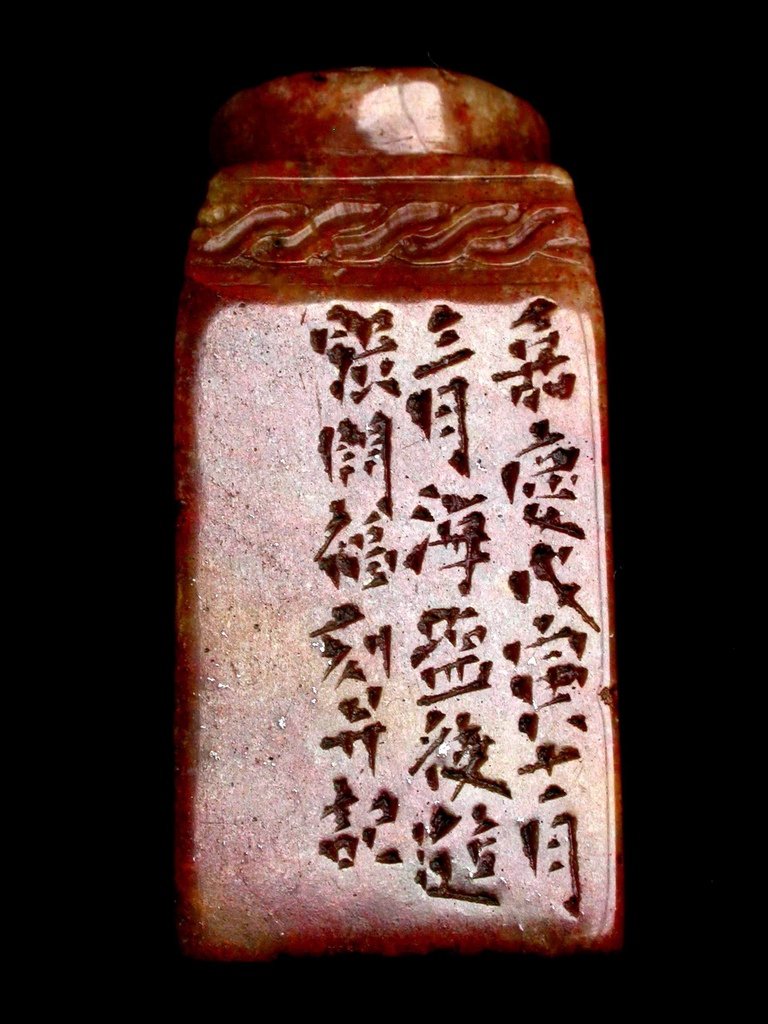 嘉慶戊寅十一月
三日海鹽後進
張開福刻并記